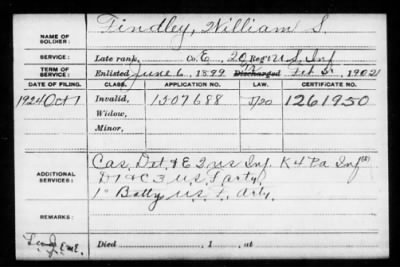 NAME OF SOLDIER: Findley, William S.
SERVICE: Late rank, Co. E, 20 Reg't U.S. Inf
TERM OF SERVICE: Enlisted June 6, 1899 Discharged 1902
DATE OF FILING. CLASS. APPLICATION NO. LAW. CERTIFICATE NO.
1924 Oct 7 Invalid, 1507688 1261950
Widow,
Minor,
ADDITIONAL SERVICES: Cas. Det. & E 2 US Inf. K 4 Pa Inf
& C 3 U.S.
1" Batty U.S. F. Arty.
Died , 1 , at